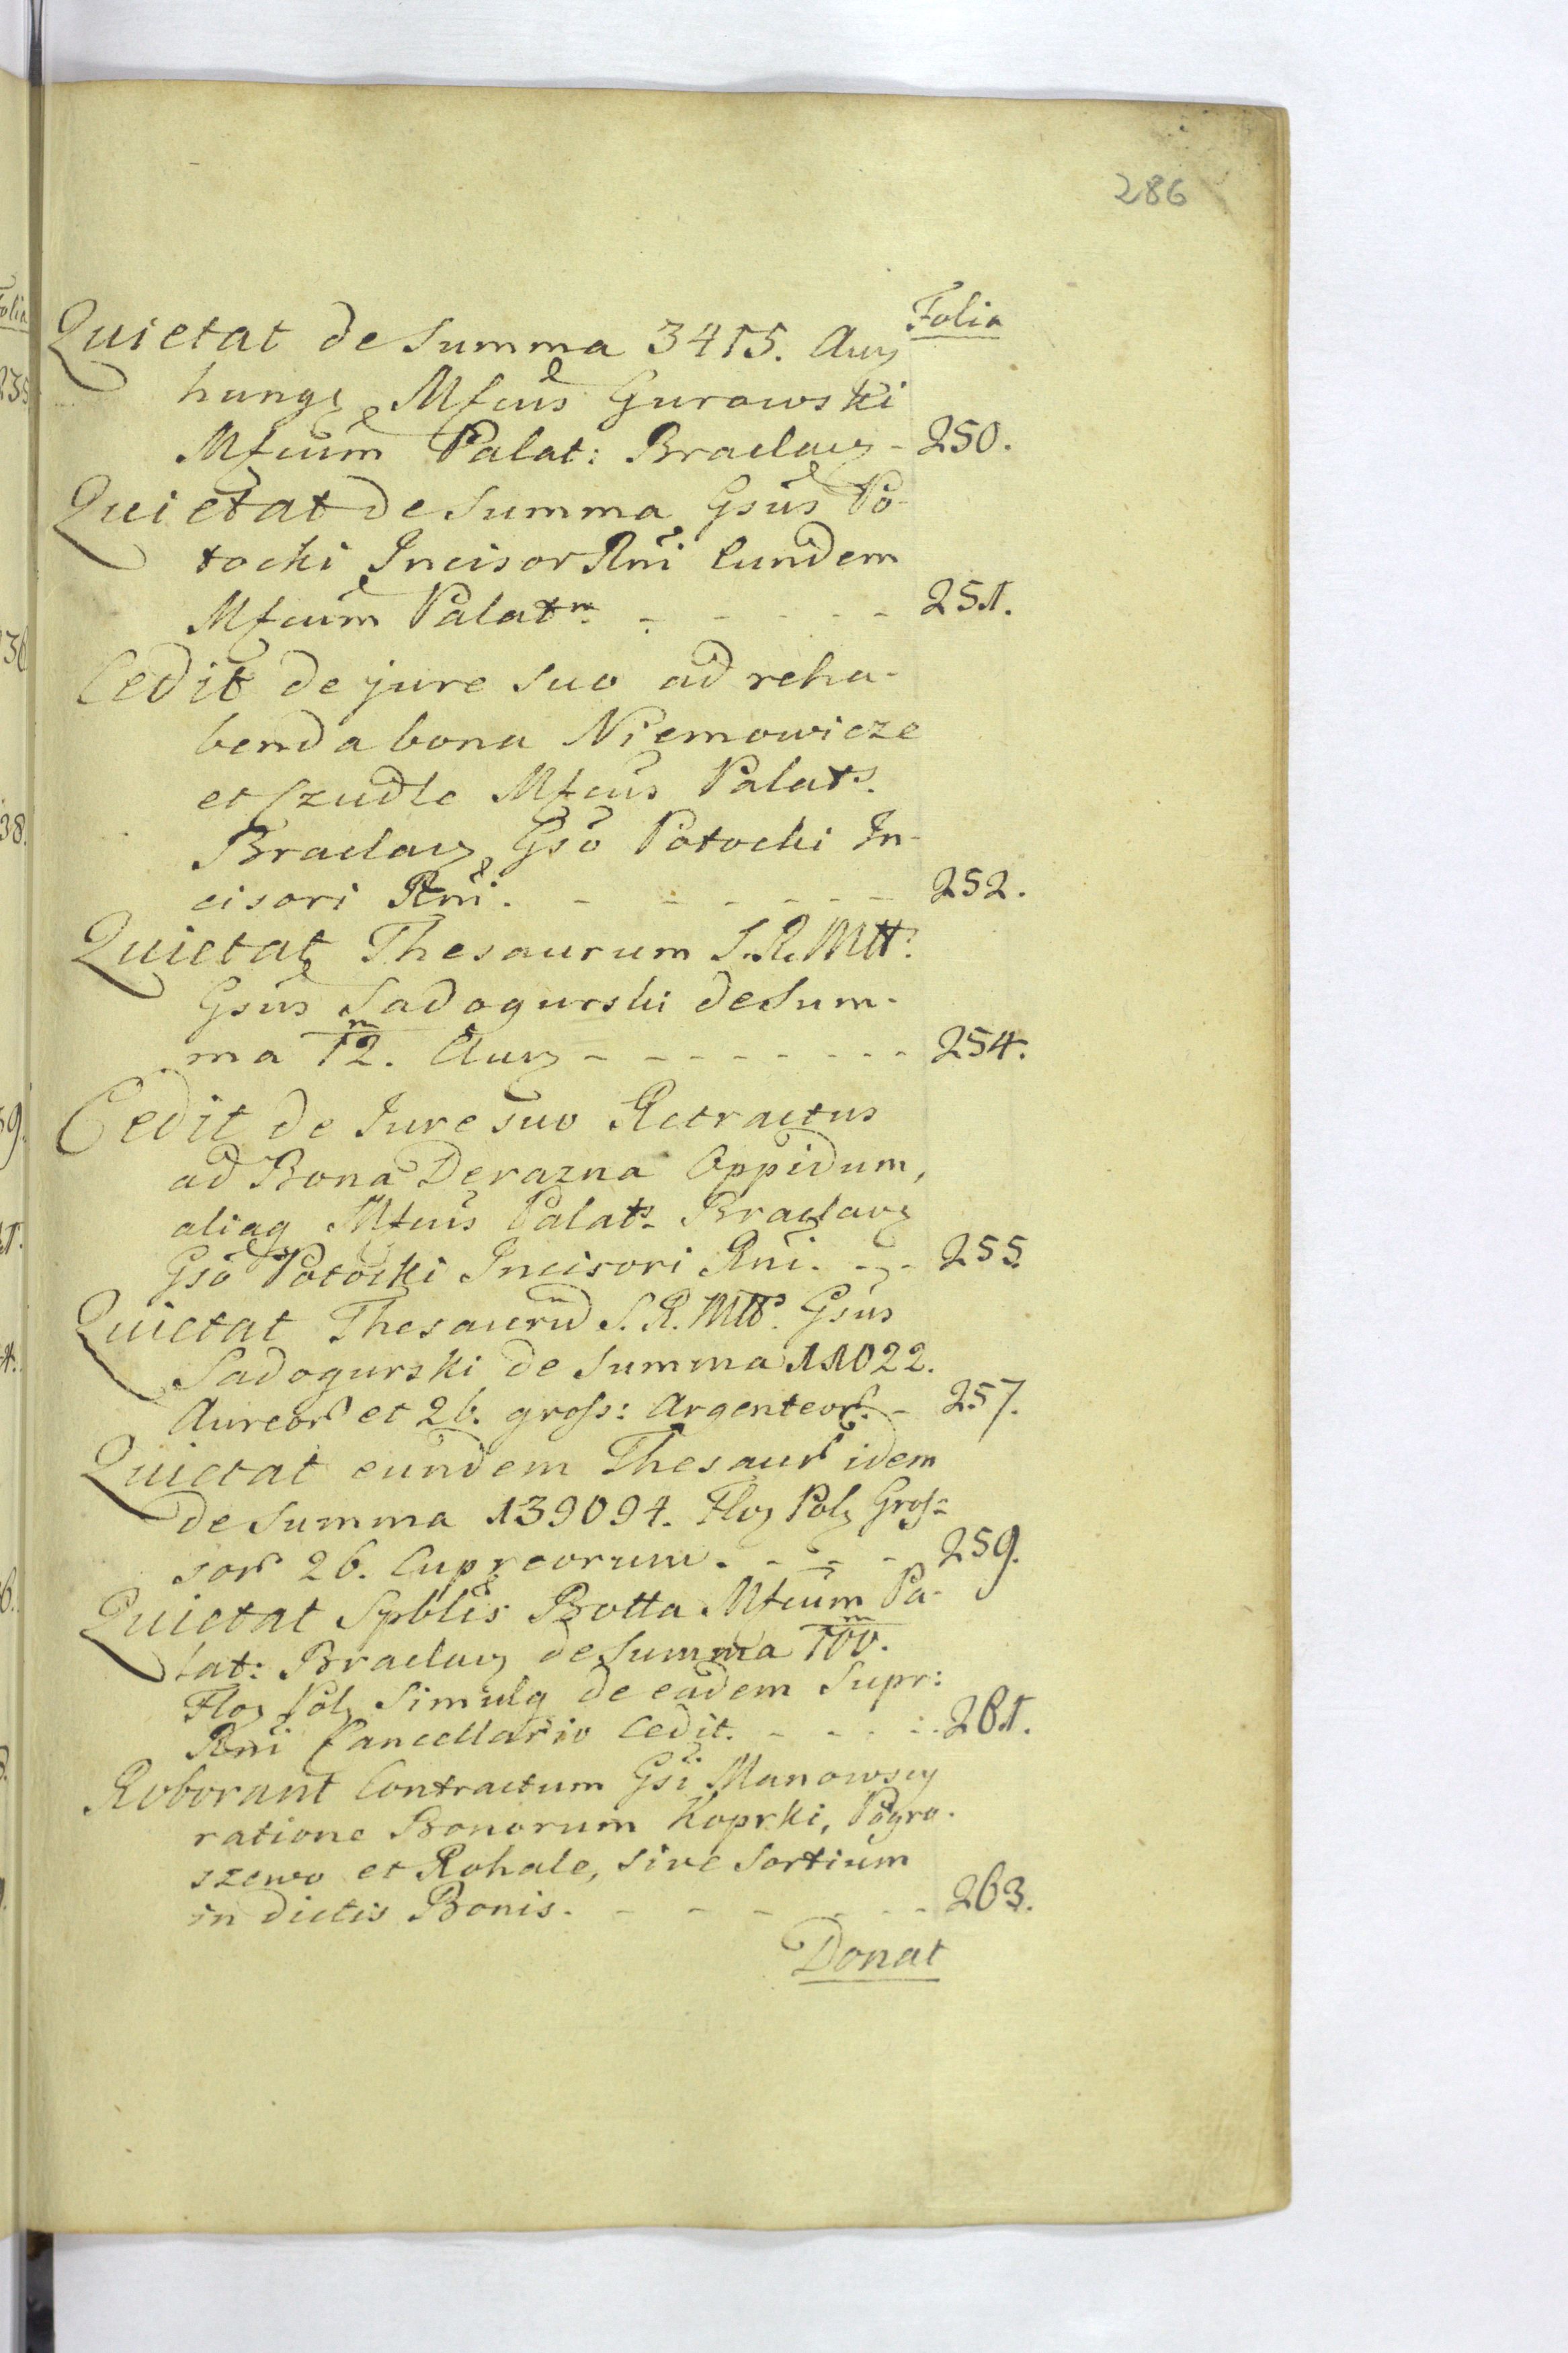 286
Folia
Quietat de Summa 3415. Aurz
hungz Mfcus Gurowski
Mfcum Palat: Braclavz - 250.
Quietat de Summa Gsus Po-
tocki Incisor Rni Eundem
Mfcum Palatm. - - - - - 251.
Cedit de jure suo ad reha-
benda bona Niemowicze
et Czudle Mfcus Palats.
Braclavz Gso Potocki In-
cisori Rni. - - - - - - 252.
Quietat Thesaurum S.R.Mtt:
Gsus Sadogurski de Sum-
ma 12.m Aurz - - - - - - - - 254.
Cedit de Jure suo Retractus
ad Bona Derazna Oppidum,
aliaq Mfcus Palats. Braclavz
Gso Potocki Incisori Rni. - - - 255.
Quietat Thesauru S.R.Mtt. Gsus
Sadogurski de Summa 11022.
Aureor et 26. gross: Argenteor. - 257.
Quietat eundem Thesaur idem
de Summa 139094. Floz Polz Gros=
sor 26. Cupreorum. - - - - 259.
Quietat Spblis Botta Mfcum Pa-
lat: Braclavz de Summa 100.m
Floz Polz Simulq de eadem Supr:
Rni Cancellario Cedit. - - - - 261.
Roborant Contractum Gsi Manowscy
ratione Bonorum Koprki, Pogro-
szewo et Rohale, sive Sortium
in dictis Bonis. - - - - - - 263.
Donat